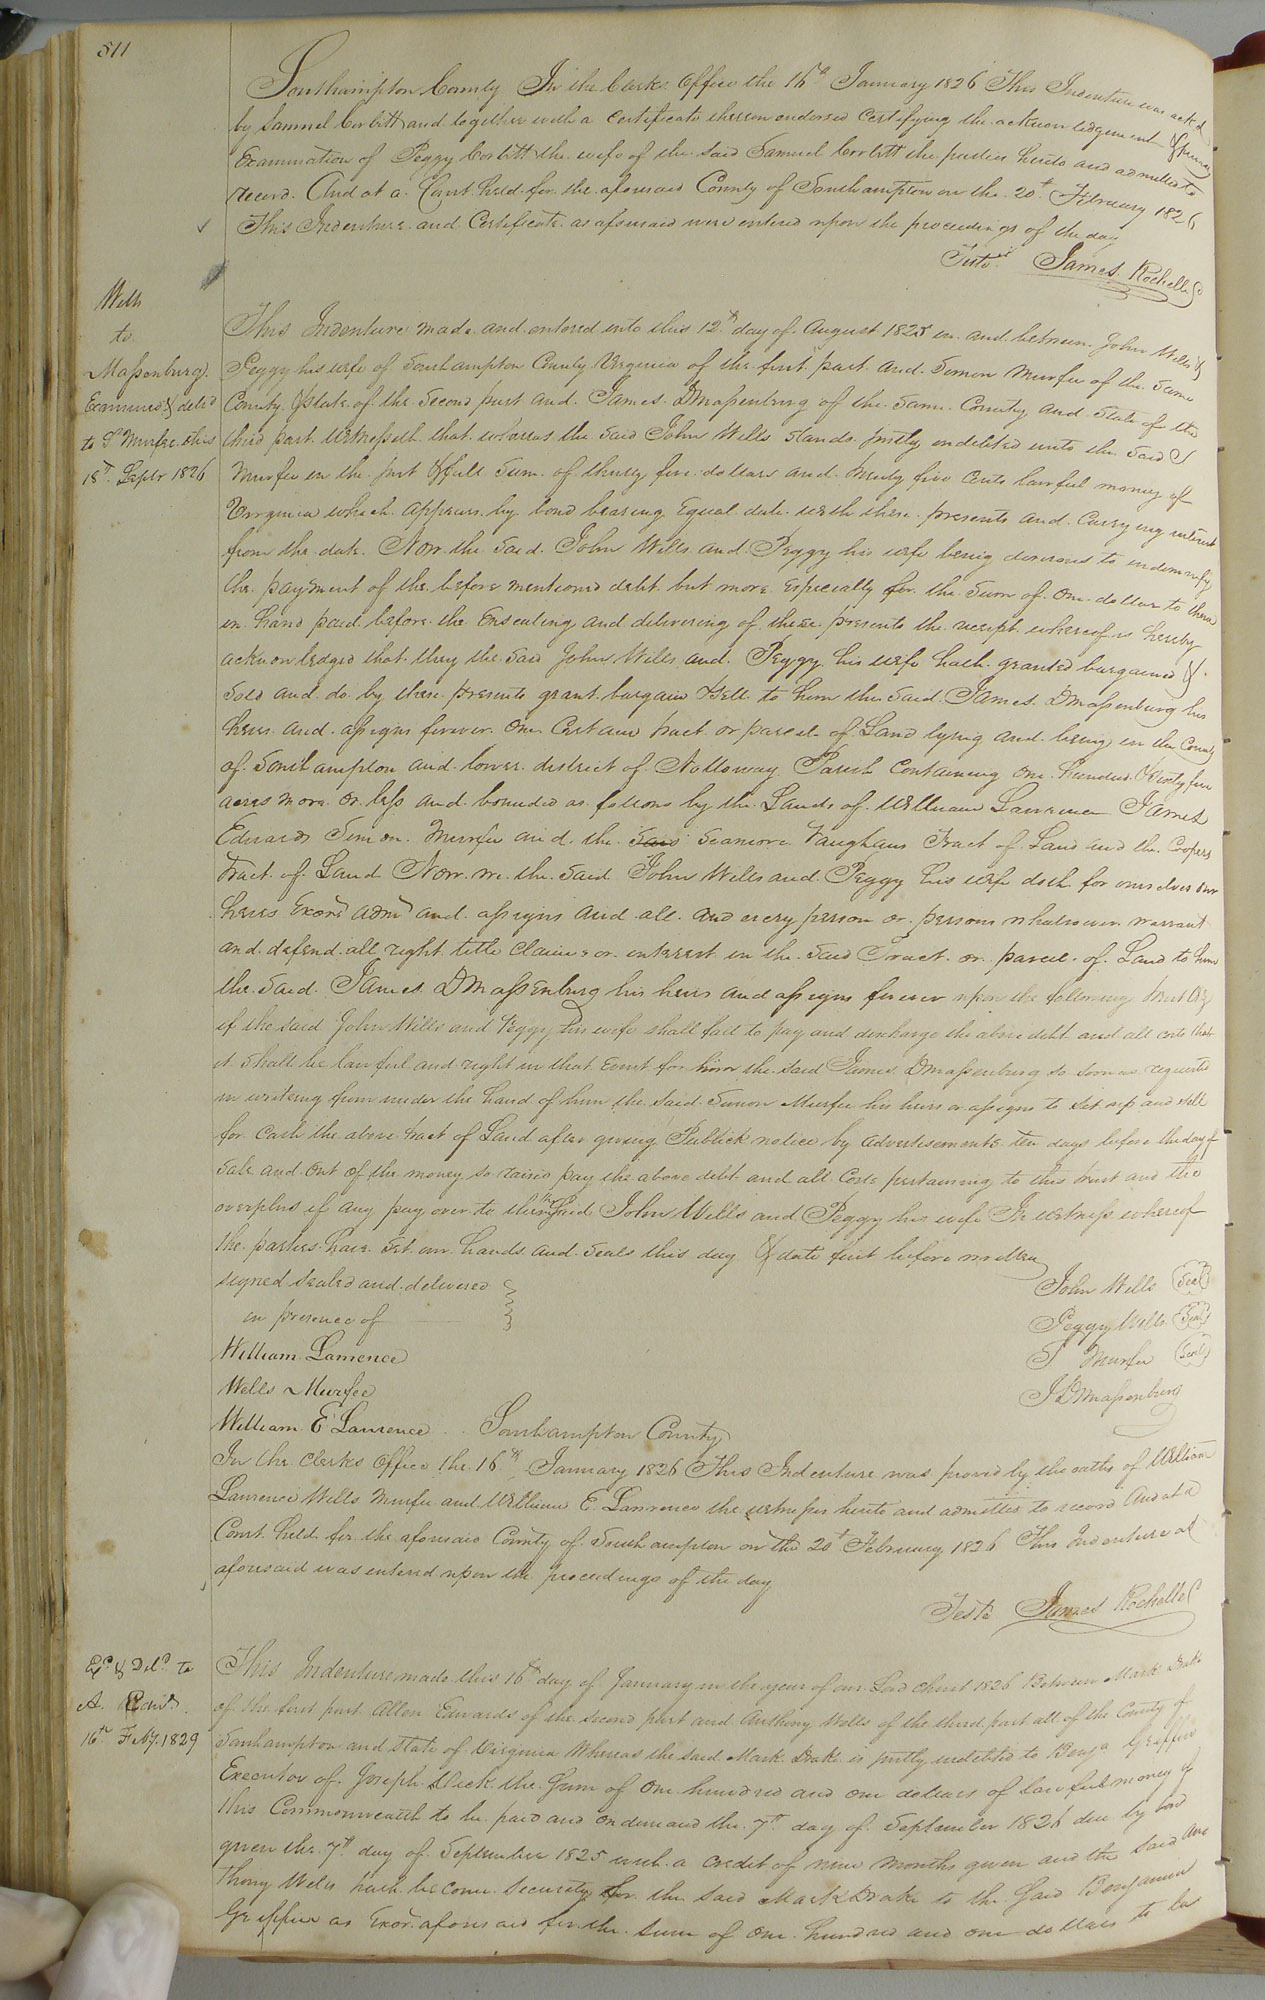 511
Southampton County In the Clerks Office the 16th January 1826 This Indenture was ackd
by Samuel Corbitt and together with a Certificate thereon endorsed Certifying the acknowledgement &
Examination of Peggy Corbitt the wife of the said Samuel Corbitt the parties hereto and admitted to
record. And at a Court held for the aforesaid County of Southampton on the 20th February 1826
This Indenture and Certificate as aforesaid were entered upon the proceedings of the day
Teste James Rochelle
Wells
to
Maſsenburg.
Examined & deld
to S Murfee this
18th Septr 1826
This Indenture made and entered into this 12th day of August 1825 in and between John Wells &
Peggy his wife of Southampton County Virginia of the first part and Simon Murfee of the same
County & State of the Second part and James D Maſsenburg of the same County and State of the
third part Witnesseth that whereas the said John Wells stands justly indebted unto the said S
Murfee in the just & full sum of thirty five dollars and twenty five Cents lawful money of
Virginia which appears by bond bearing Equal date with these presents and carrying interest
from the date. Now the said John Wells and Peggy his wife being desirous to indemnify
the payment of the before mentioned debt but more Especially for the Sum of One dollar to them
in hand paid before the Ensealing and delivering of these presents the receipt whereof is hereby
acknowledged that they the said John Wells and Peggy his wife hath granted bargained &
Sold and do by these presents grant bargain & Sell to him the said James D Maſsenburg his
heirs and aſsigns forever One Certain tract or parcel of Land lying and being in the County
of Southampton and lower district of Nottoway Parish Containing One hundred &
acres more or leſs and bounded as follows by the Lands of William Lawrence James
Edwards Simon Murfee and the said Vaughans Tract of Land and the Coopers
Tract of Land Now we the said John Wells and Peggy his wife doth for ourselves our
heirs Exors Admrs and aſsigns and all and every person or persons whatsoever warrant
and defend all right title Claims or interest in the said Tract or parcel of Land to him
the said James D Maſsenburg his heirs and aſsigns forever upon the following trust
if the said John Wells and Peggy his wife shall fail to pay and discharge the above debt and all costs that
it shall be lawful and right in that Event for him the said James D Maſsenburg so soon as requested
in writing from under the hand of him the said Simon Murfee his heirs or aſsigns to set up and sell
for Cash the above tract of Land after giving Publick notice by advertisements ten days before the day of
Sale and out of the money so raised pay the above debt and all Costs pertaining to this trust and the
overplus if any pay over to them the said John Wells and Peggy his wife In witneſs whereof
the parties have set our hands and Seals this day & date first before written
signed sealed and delivered
in presence of
John Wells Seal
Peggy Wells Seal
William Lawrence
S Murfee Seal
Wells Murfee
J D Maſsenburg
William E Lawrence Southampton County
In the Clerks Office the 16th January 1826 This Indenture was proved by the oaths of William
Lawrence Wells Murfee and William E. Lawrence the witneſses hereto and admitted to record And at a
Court held for the aforesaid County of Southampton on the 20th February 1826 This Indenture as
aforesaid was entered upon the proceedings of the day
Teste James Rochelle
Exd & Deld to
A. Edwds.
16th Feby. 1829
This Indenture made this 16th day of January in the year of our Lord christ 1826 Between Mark Drake
of the first part Allen Edwards of the second part and Anthony Wells of the third part all of the County of
Southampton and State of Virginia Whereas the said Mark Drake is justly indebted to Benja Griffin
Executor of Joseph Dick the Sum of One hundred and one dollars of lawful money of
this Commonwealth to be paid and on demand the 7th day of September 1826 due by bond
given the 7th day of September 1825 with a credit of nine months given and the said An
thony Wells hath become Security for the said Mark Drake to the said Benjamin
Griffin as Exor. aforesaid for the sum of one hundred and one dollars to be